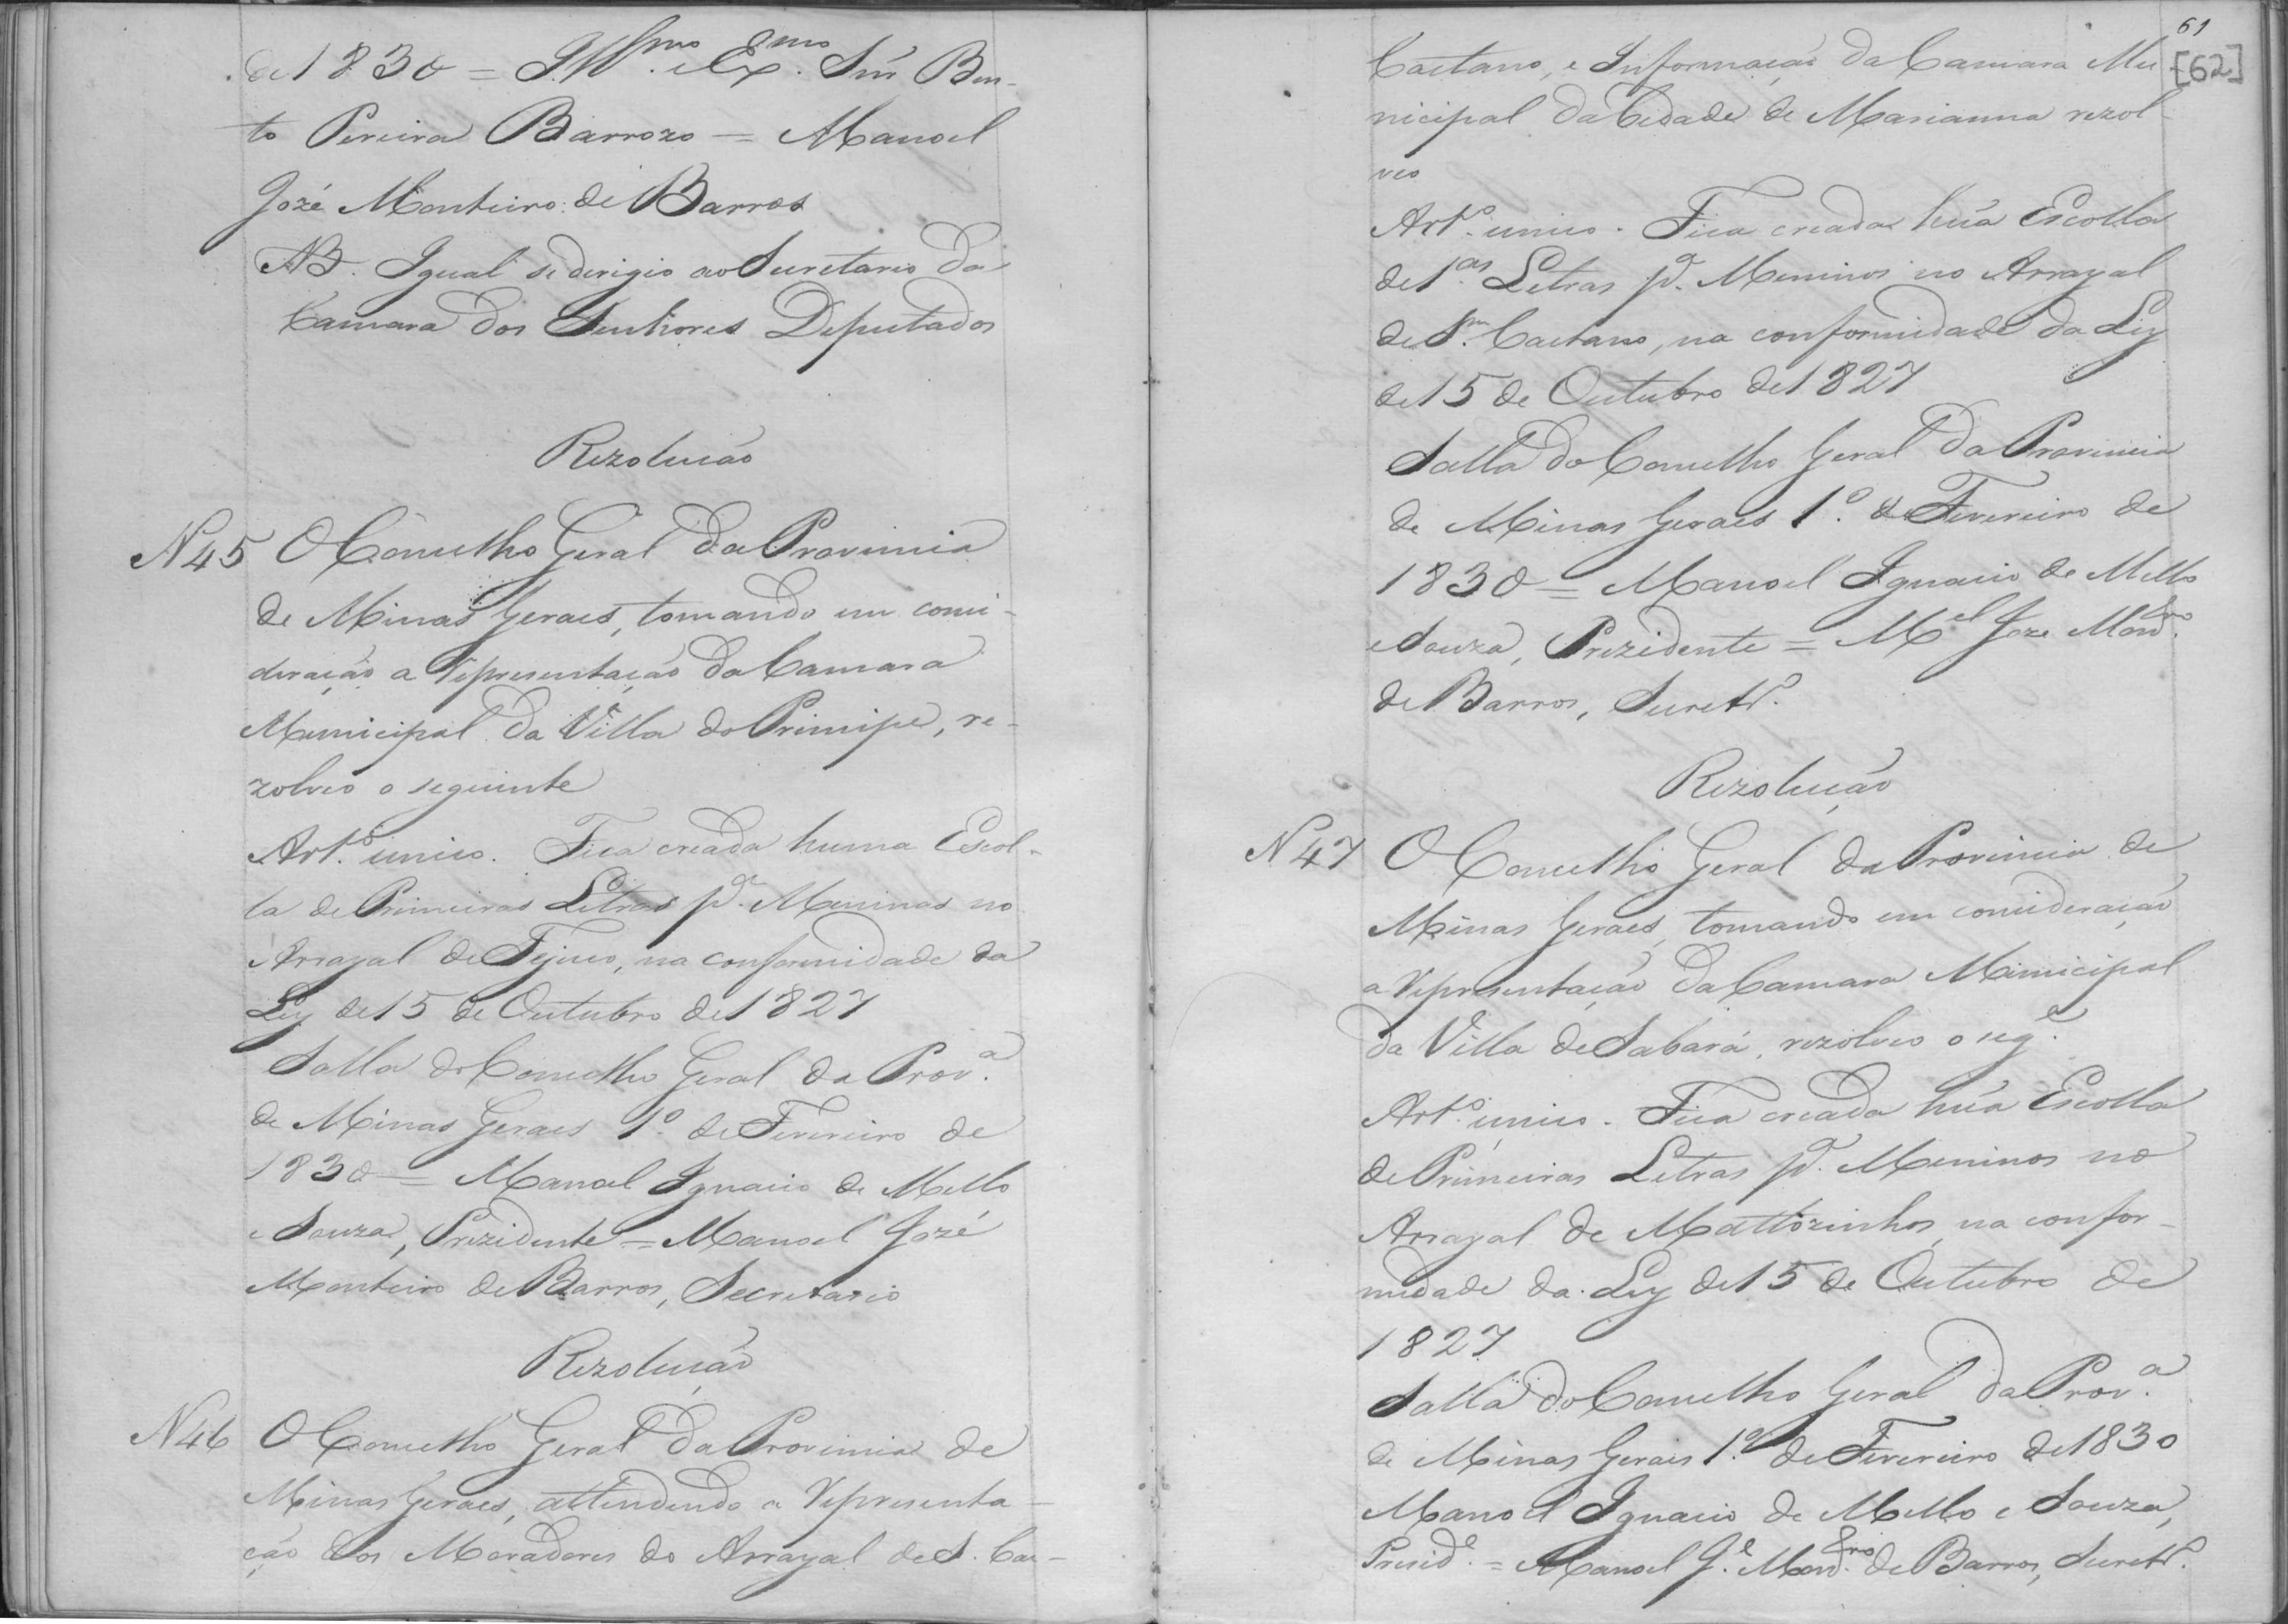 de 1830 = Illmo. e Exmo. Snr Ben-
to Pereira Barrozo = Manoel
Jozé Monteiro de Barros
NB. Igual se derigio ao Secretario da
Camara dos Senhores Deputados
Rezolução
N 45 O Concelho Geral da Provincia
de Minas Geraes, tomando em consi-
deração a representação da Camara
Municipal da Villa do Principe, re-
zolveo o seguinte
Art.º unico. Fica creada huma Escol-
la de Primeiras Letras pª. Meninas no
Arrayal de Tejuco, na conformidade da
Ley de 15 de Outubro de 1827
Salla do Concelho Geral da Prov.ª
de Minas Geraes 1º. de Fevereiro de
1830 = Manoel Ignacio de Mello
e Souza, Prezidente = Manoel Jozé
Monteiro de Barros, Secretario
Rezolução
N 46 O Concelho Geral da Provincia de
Minas Geraes, attendendo a representa-
ção dos Moradores do Arrayal de S. Cae-
61
[62]
Caetano, e Informação da Camara Mu-
nicipal da Cidade de Marianna rezol-
veo
Art.º unico. Fica creada hũa Escolla
de 1.as Letras pª. Meninos no Arrayal
de Sm. Caetano, na conformidade da Ley
de 15 de Outubro de 1827
Salla do Concelho Geral da Provincia
de Minas Geraes 1º. de Fevereiro de
1830 = Manoel Ignacio de Mello
e Souza, Prezidente = Mel Joze Montro.
de Barros, Secretrº.
Rezolução
N 47 O Concelho Geral da Provincia de
Minas Geraes, tomando em consideração
a representação da Camara Municipal
da Villa de Sabará, rezolveo o sege.
Art.º unico. Fica creada hũa Escolla
de Primeiras Letras pª. Meninos no
Arrayal de Mattozinhos, na confor-
midade da Ley de 15 de Outubro de
1827
Salla do Concelho Geral da Prov.ª
de Minas Geraes 1º. de Fevereiro de 1830
Manoel Ignacio de Mello e Souza,
Preside. = Manoel Je. Montro. de Barros, Secretrº.